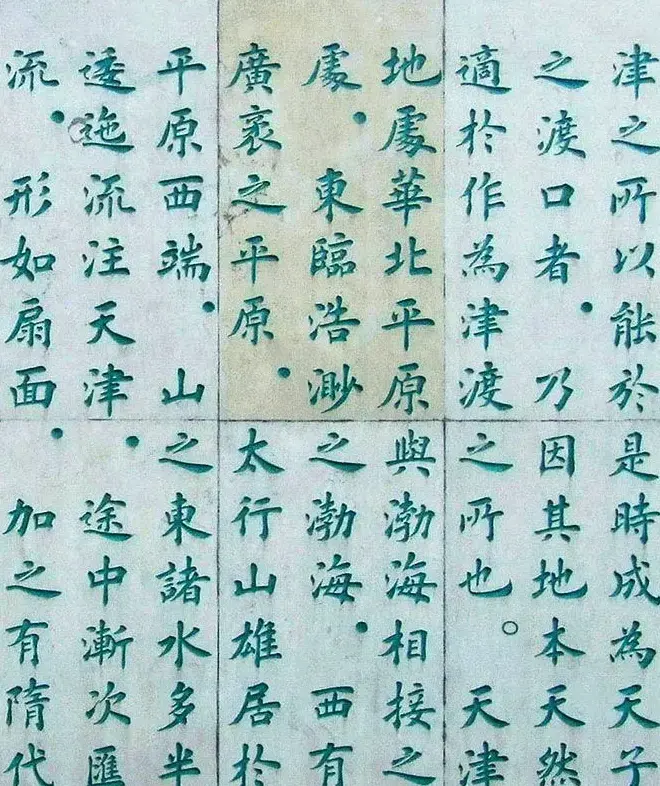 津之所以能於是時成為天子
之渡口者，乃因其地本天然
適於作為津渡之所也。天津
地處華北平原與渤海相接之
處，東臨浩渺之渤海，西有
廣袤之平原，太行山雄居於
平原西端，山之東諸水多半
逶迤流注天津，途中漸次匯
流，形如扇面，加之有隋代